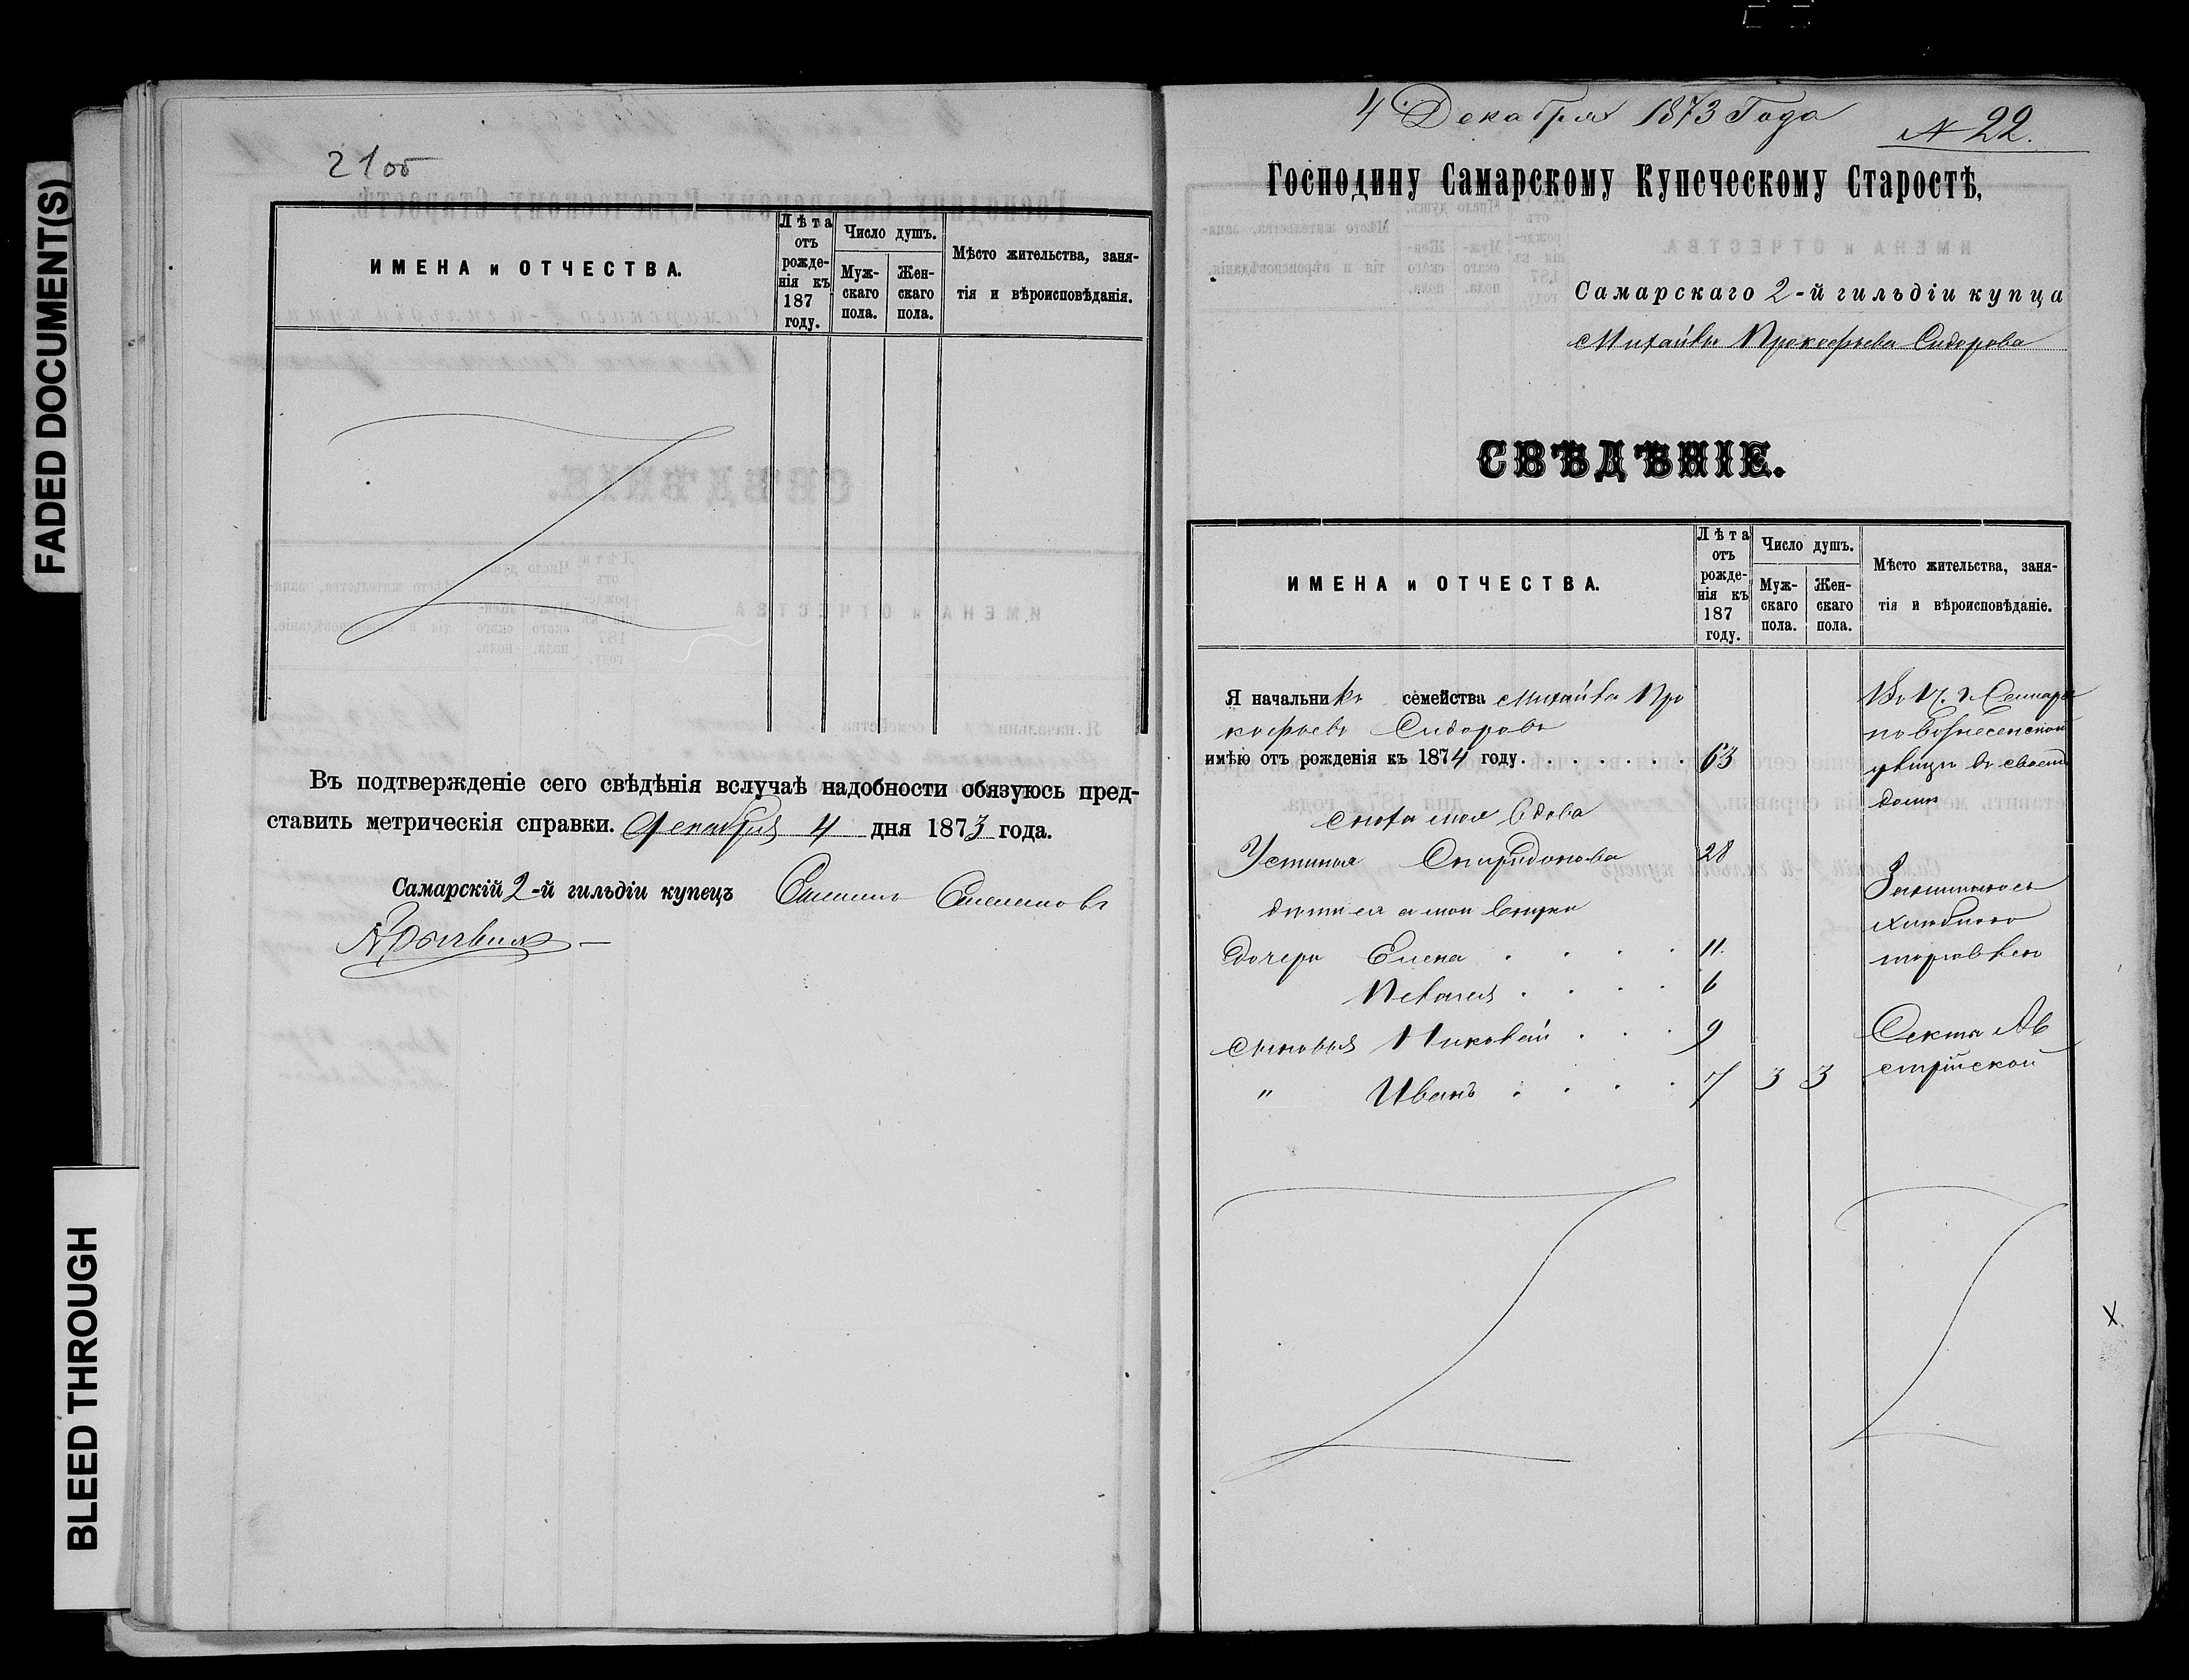 FADED DOCUMENT(S)
BLEED THROUGH
21об
ИМЕНА и ОТЧЕСТВА.
Лѣта отъ рожденія къ 187 году.
Число душъ.
Мужскаго пола.
Женскаго пола.
Мѣсто жительства, заня-
тія и вѣроисповѣданія.
Въ подтвержденіе сего свѣдѣнія вслучаѣ надобности обязуюсь пред-
ставить метрическія справки. Декабря 4 дня 1873 года.
Самарскій 2-й гильдіи купецъ
4 Декабря 1873 Года
№ 22.
Господину Самарскому Купеческому Старостѣ,
Самарскаго 2-й гильдіи купца
Михайлы Прокофьева Сидорова
СВѢДѢНІЕ.
ИМЕНА и ОТЧЕСТВА.
Лѣта отъ рожденія къ 187 году.
Число душъ.
Мужскаго пола.
Женскаго пола.
Мѣсто жительства, заня-
тія и вѣроисповѣданіе.
Я начальникъ семейства Михайла Про
кофьевъ Сидоровъ
имѣю отъ рожденія къ 1874 году. 63
сноха моя вдова
Устинья Спиридонова 28
дѣти ея а мои внуки
дочери Елена 11.
Пелагея 6
сыновья Николай 9
" Иванъ 7 3 3
Въ Ч. г. Самары
по вознесенской
улицѣ въ своемъ
домѣ
Занимаюсь
хлѣбною
торговлею
Секты Ав
стрійской
X